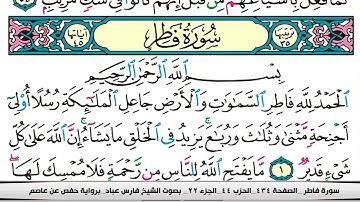 كَمَا فُعِلَ بِأَشْيَاعِهِم مِّن قَبْلُ إِنَّهُمْ كَانُوا۟ فِى شَكٍّ مُّرِيبٍ
ترتيبها ٣٥ سُورَةُ فَاطِرٍ آياتها ٤٥
بِسْمِ ٱللَّهِ ٱلرَّحْمَٰنِ ٱلرَّحِيمِ
ٱلْحَمْدُ لِلَّهِ فَاطِرِ ٱلسَّمَٰوَٰتِ وَٱلْأَرْضِ جَاعِلِ ٱلْمَلَٰٓئِكَةِ رُسُلًا أُو۟لِىٓ
أَجْنِحَةٍ مَّثْنَىٰ وَثُلَٰثَ وَرُبَٰعَ ۚ يَزِيدُ فِى ٱلْخَلْقِ مَا يَشَآءُ ۚ إِنَّ ٱللَّهَ عَلَىٰ كُلِّ
شَىْءٍ قَدِيرٌ ١ مَّا يَفْتَحِ ٱللَّهُ لِلنَّاسِ مِن رَّحْمَةٍ فَلَا مُمْسِكَ لَهَا ۖ
سورة فاطر_ الصفحة ٤٣٤_ الحزب ٤٤_ الجزء ٢٢_ بصوت الشيخ فارس عباد_ برواية حفص عن عاصم